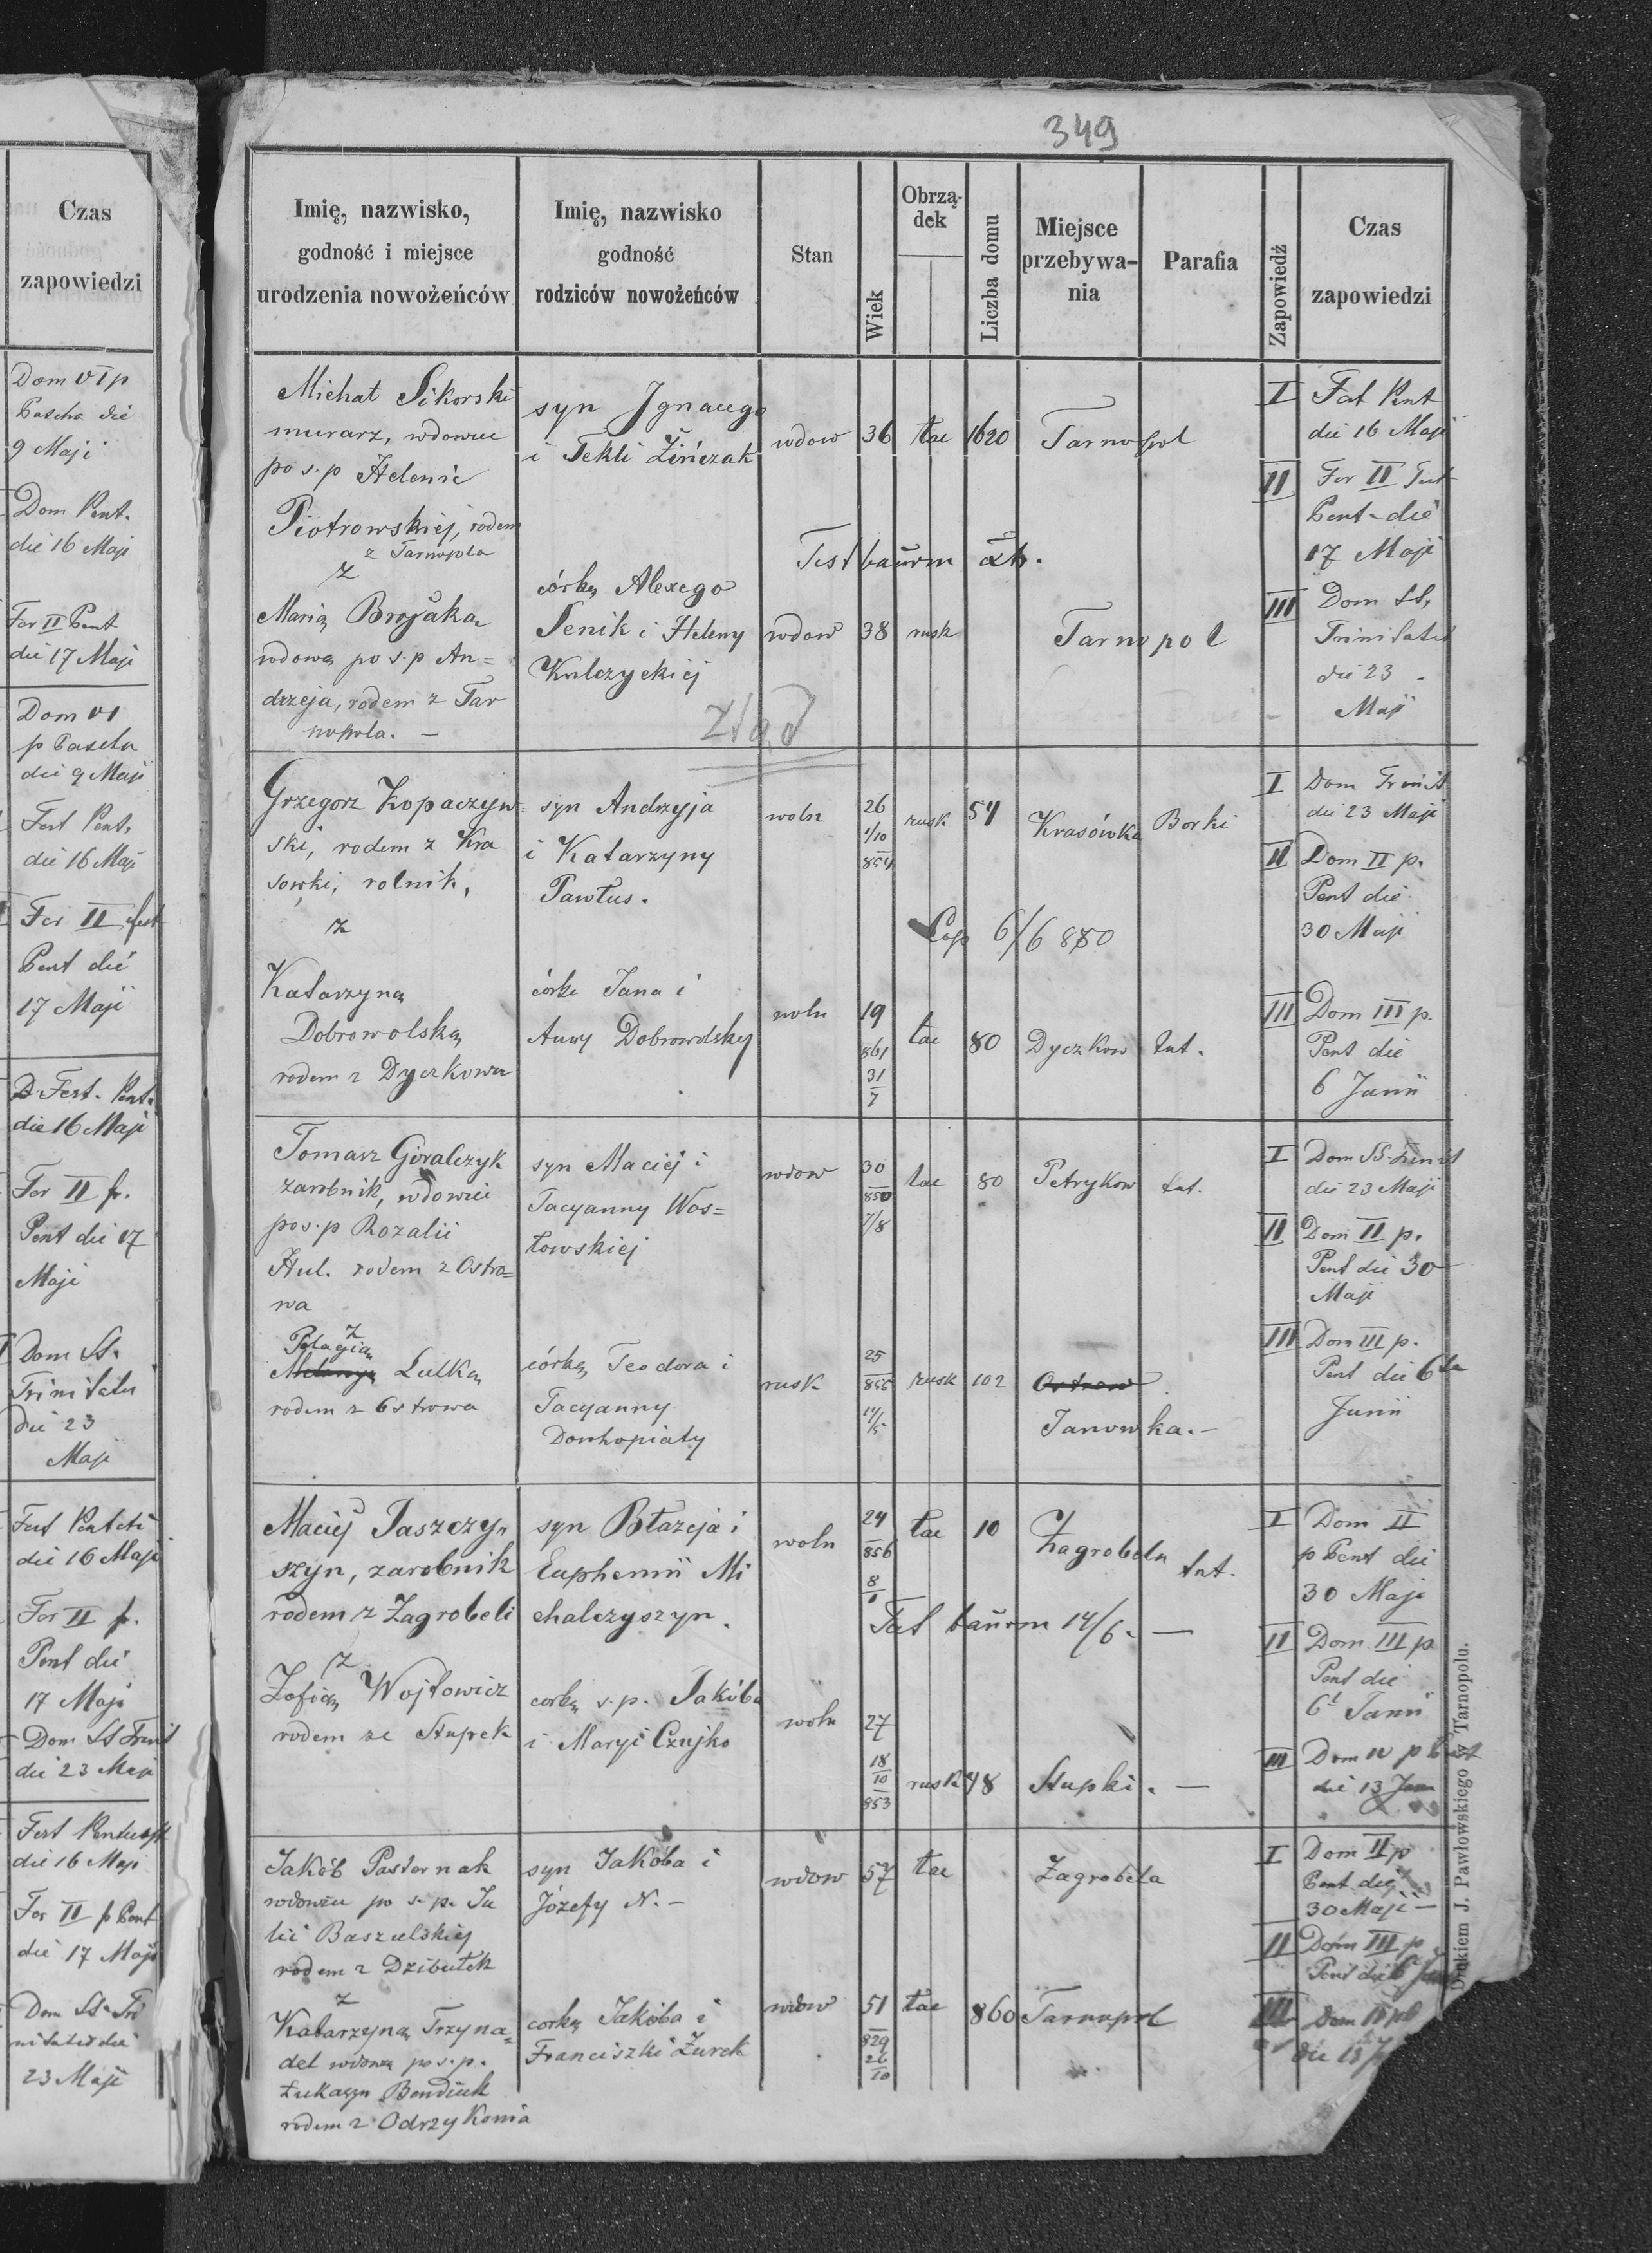 Czas
zapowiedzi
Dom VI p
Pascha die
9 Maji
Dom Pent.
die 16 Maji
Fer II Pent
die 17 Maji
Dom VI
p Pascha
die 9 Maji
Fest Pent.
die 16 Maji
Fer II fest
Pent die
17 Maji
Fest. Pent.
die 16 Maji
Fer II p.
Pent die 17
Maji
Dom SS.
Trinitatis
die 23
Maji
Fest Pentec
die 16 Maji
Fer II p.
Pent die
17 Maji
Dom SS Trinit
die 23 Maji
Fest Pentecost
die 16 Maji
Fer II p Pent
die 17 Maji
Dom SS Tri
nitatis die
23 Maji
349
Imię, nazwisko,
godność i miejsce
urodzenia nowożeńców
Imię, nazwisko
godność
rodziców nowożeńców
Stan
Wiek
Obrzą-
dek
Liczba domu
Miejsce
przebywa-
nia
Parafia
Zapowiedź
Czas
zapowiedzi
Michał Sikorski
murarz, wdowiec
po s.p Helenie
Piotrowskiej, rodem
z Tarnopola
z
Marią Brojaka
wdową po s.p An=
drzeja, rodem z Tar
nopola. —
syn Ignacego
i Tekli Zińczak
córką Alexego
Senik i Heleny
Kulczyckiej
wdow 36 łac 1620 Tarnopol
Test
wdow 38 rusk Tarnopol
I Fest Pent
die 16 Maji
II Fer II Fest
Pent die
17 Maji
III Dom SS.
Trinitatis
die 23
Maji
Grzegorz Kopaczyw=
ski, rodem z Kra
sowki, rolnik,
z
Katarzyną
Dobrowolską
rodem z Dyczkowa
syn Andrzyja
i Katarzyny
Pawłus.
córka Jana i
Anny Dobrowolsky
woln 26 1/10 854 rusk 54 Krasówka Borki
Cop 6/6 880
woln 19 861 31/7 łac 80 Dyczkow tut.
I Dom Trinit
die 23 Maji
II Dom II p.
Pent die
30 Maji
III Dom III p.
Pent die
6 Junii
Tomasz Góralczyk
zarobnik, wdowiec
po s.p Rozalii
Hul. rodem z Ostro=
wa
z
Pelagią
Lulką
rodem z Ostrowa
syn Maciej i
Tacyanny Wos=
łowskiej
córką Teodora i
Tacyanny
Dowhopiaty
wdow 30 850 7/8 łac 80 Petrykow tut.
rusk 25 855 14/5 rusk 102 Ostrow
Janowka. —
I Dom SS. Trinit
die 23 Maji
II Dom II p.
Pent die 30
Maji
III Dom III p.
Pent die 6ta
Junii
Maciej Jaszczy
szyn, zarobnik
rodem z Zagrobeli
z
Zofią Wojtowicz
rodem ze Stupek
syn Błazeja i
Euphemii Mi
chalczyszyn.
corką s.p. Jakóba
i Maryi Czujko
woln 24 856 8/1 łac 10 Zagrobela tut.
14/6. —
woln 27 18/10 853 rusk 48 Stupki. —
I Dom II
p Pent die
30 Maji
II Dom III p
Pent die
6t Junii
III Dom IV p Pent
die 13 Jun
Jakób Pasternak
wdowiec po s.p. Ju
lii Baszulskiej
rodem z Dzibułek
z
Katarzyną Trzyna=
del wdową po s.p.
Łukaszu Bondiuk
rodem z Odrzykonia
syn Jakóba i
Józefy N. —
corką Jakóba i
Franciszki Żurek
wdow 57 łac Zagrobela
wdow 51 829 26/10 łac 860 Tarnopol
I Dom II p
Pent die
30 Maji —
II Dom III p
Pent die 6
III Dom IV
die 13
Drukiem J. Pawłowskiego w Tarnopolu.